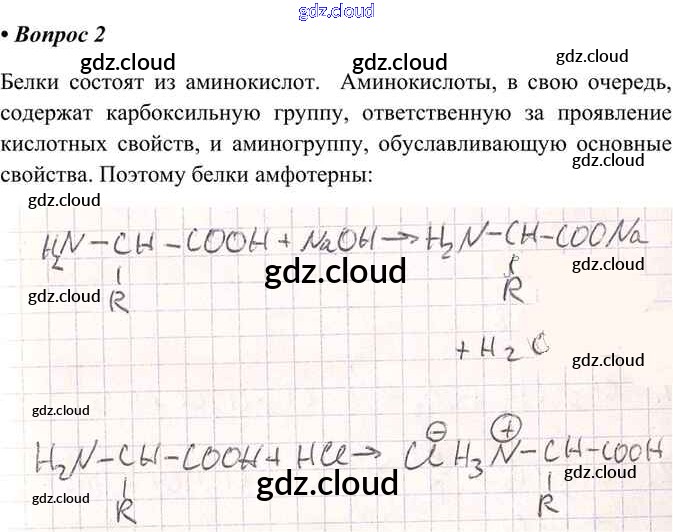 gdz.cloud
• Вопрос 2
gdz.cloud gdz.cloud gdz.cloud
Белки состоят из аминокислот. Аминокислоты, в свою очередь,
содержат карбоксильную группу, ответственную за проявление
кислотных свойств, и аминогруппу, обуславливающую основные
gdz.cloud
свойства. Поэтому белки амфотерны:
gdz.cloud gdz.cloud
H₂N–CH–COOH + NaOH → H₂N–CH–COONa
gdz.cloud gdz.cloud
R R
gdz.cloud
+ H₂O
gdz.cloud
gdz.cloud gdz.cloud
⊖ ⊕
H₂N–CH–COOH + HCl → Cl H₃N–CH–COOH
gdz.cloud gdz.cloud
R R
gdz.cloud